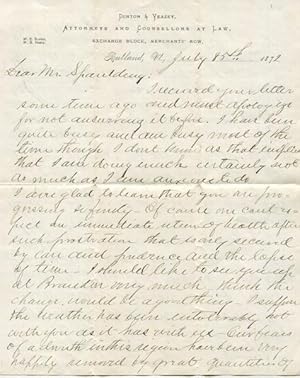 DUNTON & VEAZEY,
ATTORNEYS AND COUNSELLORS AT LAW,
EXCHANGE BLOCK, MERCHANTS' ROW,
Rutland, Vt, July 25th 1872
Dear Mr. Spaulding:
I received your letter
some time ago and must apologize
for not answering it before. I have been
quite busy and am busy most of the
time though I don't know as that implies
that I am doing much certainly not
as much as I am anxious to do.
I am glad to learn that you are pro-
gressing so finely. Of course one can't ex-
pect an immediate return of health after
such prostration that is only secured
by care and prudence and the lapse
of time. I should like to see you up
at Brandon very much, think the
change would be a good thing. I suppose
the weather has been intolerably hot
with you as it has with us. Our fears
of a drouth in this region have been very
happily removed by great quantities of